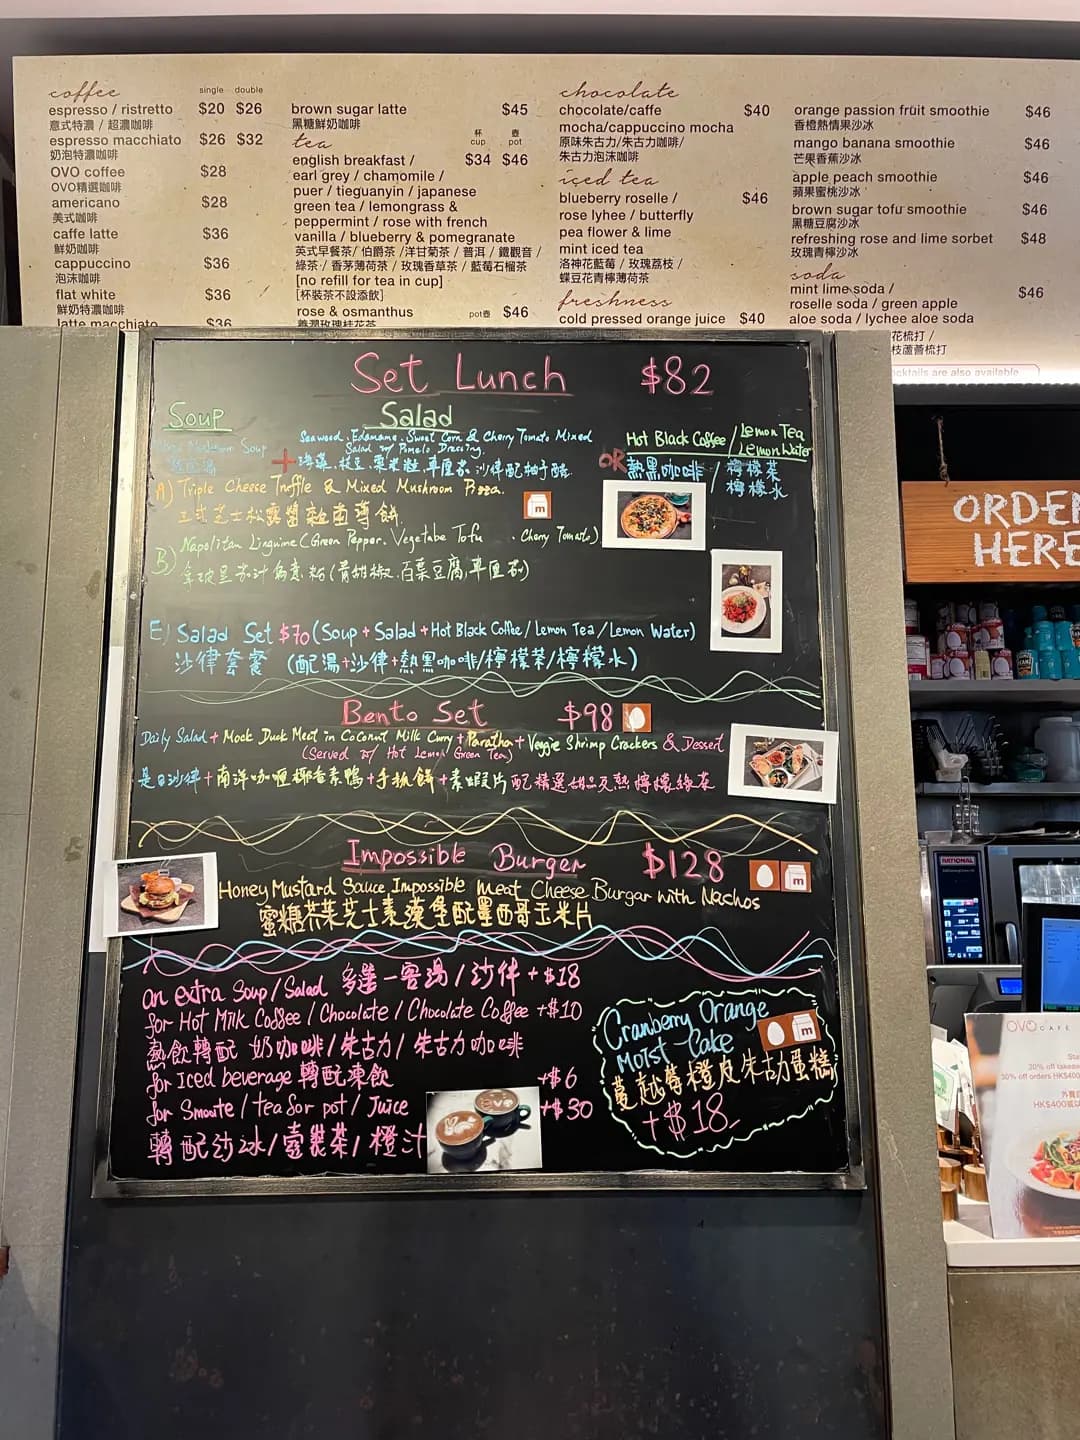 coffee
single double
espresso / ristretto $20 $26
意式特濃 / 超濃咖啡
espresso macchiato $26 $32
奶泡特濃咖啡
OVO coffee $28
OVO精選咖啡
americano $28
美式咖啡
caffe latte $36
鮮奶咖啡
cappuccino $36
泡沫咖啡
flat white $36
鮮奶特濃咖啡
latte macchiato $36
brown sugar latte $45
黑糖鮮奶咖啡
tea
杯 壺
cup pot
english breakfast / $34 $46
earl grey / chamomile /
puer / tieguanyin / japanese
green tea / lemongrass &
peppermint / rose with french
vanilla / blueberry & pomegranate
英式早餐茶/ 伯爵茶 /洋甘菊茶 / 普洱 / 鐵觀音 /
綠茶 / 香茅薄荷茶 / 玫瑰香草茶 / 藍莓石榴茶
[no refill for tea in cup]
[杯裝茶不設添飲]
rose & osmanthus pot壺 $46
養潤玫瑰桂花茶
chocolate
chocolate/caffe $40
mocha/cappuccino mocha
原味朱古力/朱古力咖啡/
朱古力泡沫咖啡
iced tea
blueberry roselle / $46
rose lyhee / butterfly
pea flower & lime
mint iced tea
洛神花藍莓 / 玫瑰荔枝 /
蝶豆花青檸薄荷茶
freshness
cold pressed orange juice $40
orange passion fruit smoothie $46
香橙熱情果沙冰
mango banana smoothie $46
芒果香蕉沙冰
apple peach smoothie $46
蘋果蜜桃沙冰
brown sugar tofu smoothie $46
黑糖豆腐沙冰
refreshing rose and lime sorbet $48
玫瑰青檸沙冰
soda
mint lime soda / $46
roselle soda / green apple
aloe soda / lychee aloe soda
花梳打 /
枝蘆薈梳打
cktails are also available
Set Lunch $82
Soup Salad
Seaweed, Edamame, Sweet Corn & Cherry Tomato Mixed
Salad w/ Pomelo Dressing.
Mushroom Soup
+ 海藻、枝豆、粟米粒、車厘茄沙律配柚子醋
OR
Hot Black Coffee / Lemon Tea
Lemon Water
熱黑咖啡 / 檸檬茶
檸檬水
A) Triple Cheese Truffle & Mixed Mushroom Pizza.
三式芝士松露醬雜菌薄餅
m
B) Napolitan Linguine (Green Pepper, Vegetabe Tofu , Cherry Tomato)
拿破里茄汁扁意粉(青甜椒、百葉豆腐,車厘茄)
E) Salad Set $70 (Soup + Salad + Hot Black Coffee / Lemon Tea / Lemon Water)
沙律套餐 (配湯+沙律+熱黑咖啡/檸檬茶/檸檬水)
Bento Set $98
Daily Salad + Mock Duck Meat in Coconut Milk Curry + Paratha + Veggie Shrimp Crackers & Dessert
(Served w/ Hot Lemon Green Tea)
是日沙律+南洋咖喱椰香素鴨+手抓餅+素蝦片 配精選甜品及熱檸檬綠茶
Impossible Burger $128
m
Honey Mustard Sauce Impossible Meat Cheese Burger with Nachos
蜜糖芥茉芝士素漢堡配墨西哥玉米片
an extra Soup / Salad 多選一客湯 / 沙律 + $18
for Hot Milk Coffee / Chocolate / Chocolate Coffee +$10
熱飲轉配 奶咖啡/朱古力/ 朱古力咖啡
for Iced beverage 轉配凍飲 +$6
for Smoote / tea for pot / Juice +$30
轉配沙冰/壺裝茶/橙汁
Cranberry Orange
Moist Cake
m
蔓越莓橙皮朱古力蛋糕
+$18-
ORDER
HERE
RATIONAL
OVO CAFE
30% off takea
30% off orders HK$400